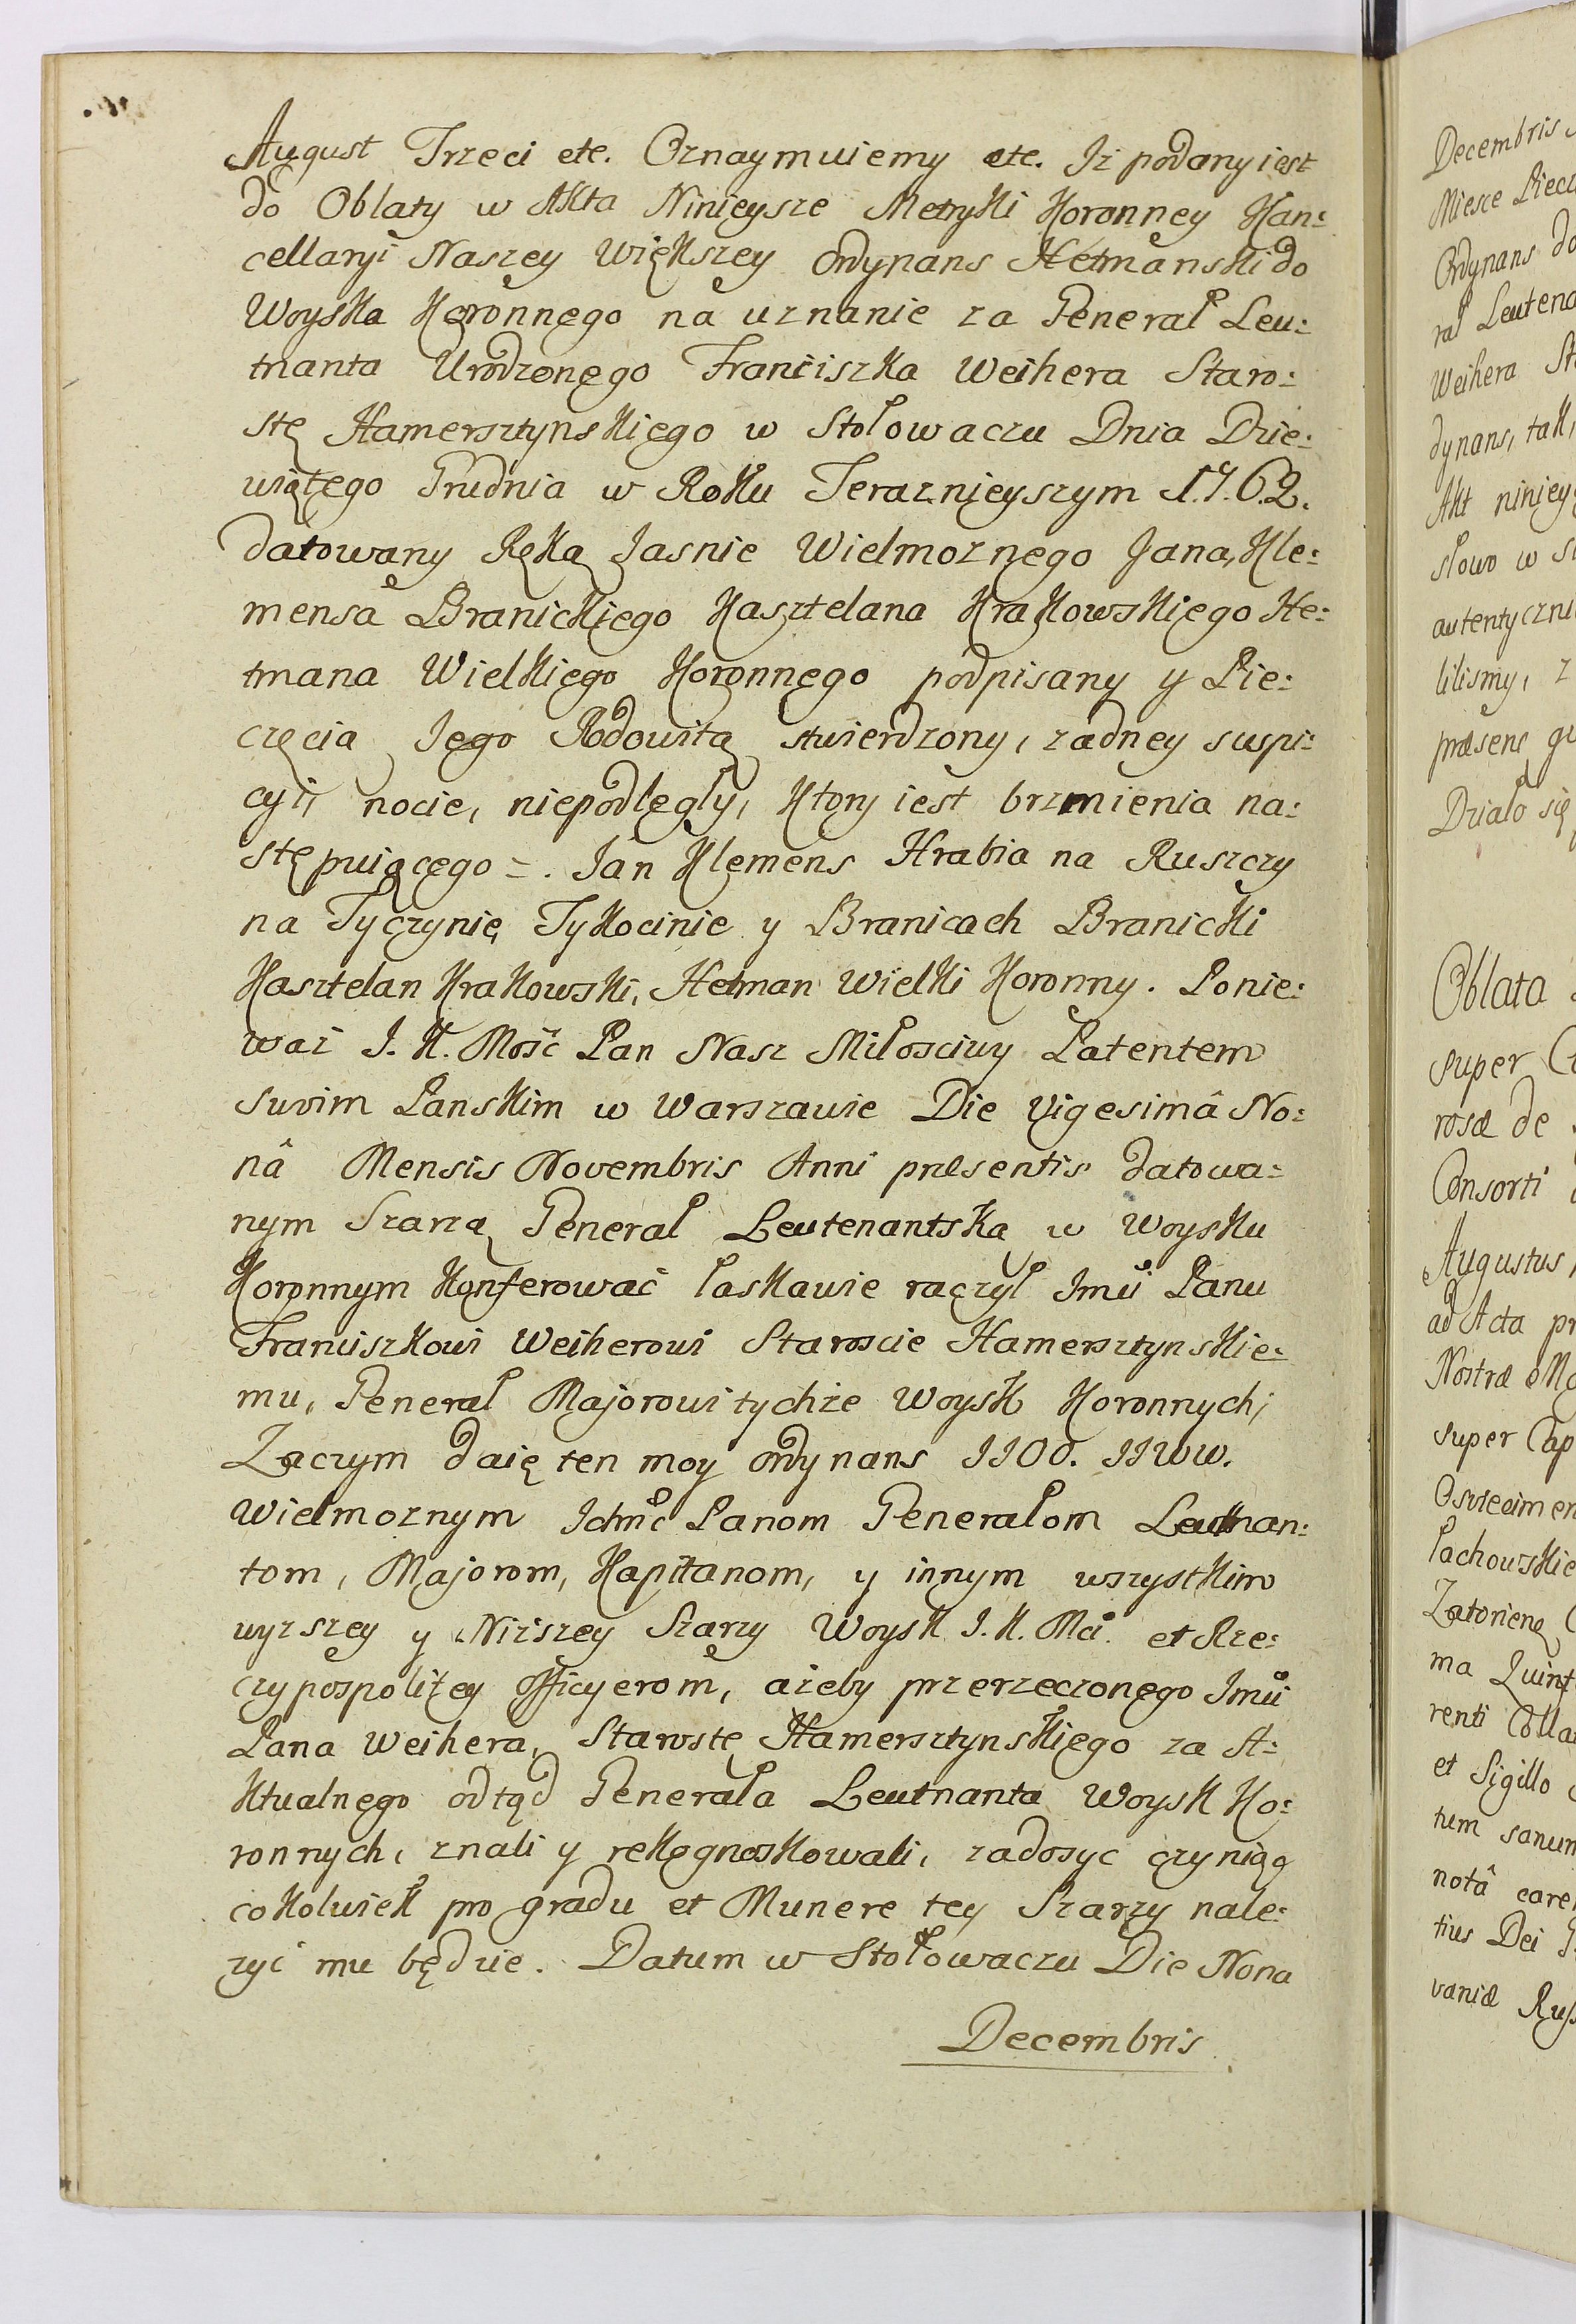 August Trzeci etc. Oznaymuiemy etc. Iż podany iest
do Oblaty w Akta Ninieysze Metryki Koronney Kan:
cellaryi Naszey Większey Ordynans Hetmanski do
Woyska Koronnego na uznanie za General Leu:
tnanta Urodzonego Franciszka Weihera Staro:
stę Hamersztynskiego w Stołowaczu Dnia Dzie:
wiątego Grudnia w Roku Teraznieyszym 1762.
datowany Ręką Jasnie Wielmoznego Jana, Kle:
mensa Branickiego Kasztelana Krakowskiego He:
tmana Wielkiego Koronnego podpisany y Pie:
częcią Jego Rodowitą stwierdzony, zadney suspi:
cyi, nocie, niepodległy, Ktory iest brzmienia na:
stępuiącego =. Jan Klemens Hrabia na Ruszczy
na Tyczynie Tykocinie y Branicach Branicki
Kasztelan Krakowski, Hetman Wielki Koronny. Ponie:
waż J. K. Mość Pan Nasz Miłosciwy Patentem
Swoim Panskim w Warszawie Die Vigesimâ No:
nâ Mensis Novembris Anni præsentis datowa:
nym Szarzą General Leutenantską w Woysku
Koronnym Konferować łaskawie raczył Jmci Panu
Franciszkowi Weiherowi Staroscie Hamersztynskie:
mu, General Majorowi tychże Woysk Koronnych;
Zaczym daię ten moy ordynans JJOO. JJWW.
Wielmoznym Ichmć Panom Generałom Leutnan:
tom, Majorom, Kapitanom, y innym wszystkim
wyzszey y Niższey Szarzy Woysk J. K. Mci. et Rze:
czypospolitey officyerom, ażeby przerzeczonego Jmci
Pana Weihera, Starostę Hamersztynskiego za A:
ktualnego odtąd Generała Leutnanta Woysk Ko:
ronnych, znali y rekognoskowali, zadosyc czyniąc
cokolwiek pro gradu et Munere tey Szarzy nale:
zyć mu będzie. Datum w Stołowaczu Die Nona
Decembris
Decembris
Miesce Piecz
Ordynans do
ral Leutena
Weihera Sta
dynans, tak,
Akt niniey
słowo w sł
autentyczni
lilismy, z
præsens
Działo się
Oblata
super
rosæ de
Consorti
Augustus
ad Acta pr
Nostræ
super Cap
Osviecimen
Łachowskie
Zatorien
ma Quint
renti Colla
et Sigillo
tum sanum
notâ care
tius Dei
vaniæ Russ